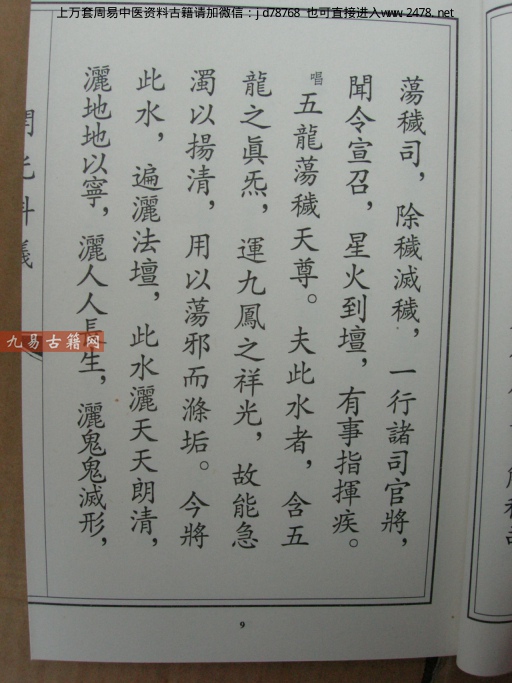 上万套周易中医资料古籍请加微信：jd78768 也可直接进入www.2478.net
蕩穢司，除穢滅穢，一行諸司官將，
聞令宣召，星火到壇，有事指揮疾。
唱五龍蕩穢天尊。夫此水者，含五
龍之眞炁，運九鳳之祥光，故能急
濁以揚清，用以蕩邪而滌垢。今將
此水，遍灑法壇，此水灑天天朗清，
灑地地以寧，灑人人長生，灑鬼鬼滅形，
九易古籍网
9